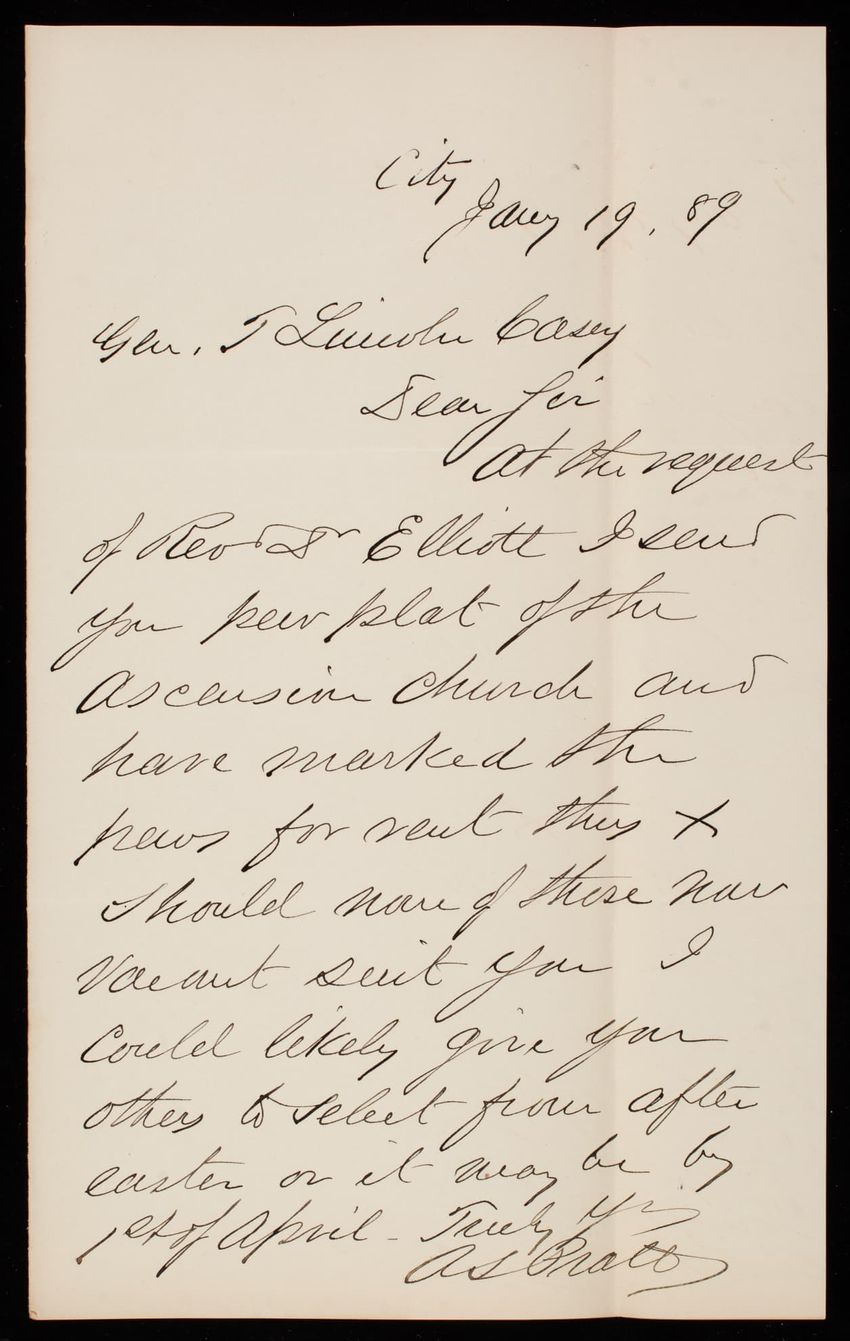 City
Jany 19, 89
Gen. T Lincoln Casey
Dear Sir
At the request
of Revd Dr Elliott I send
you pew plat of the
Ascension church and
have marked the
pews for rent thus X
Should none of those now
vacant suit you I
could likely give you
others to select from after
easter or it may be by
1st of April - Truly Yrs
A S Pratt